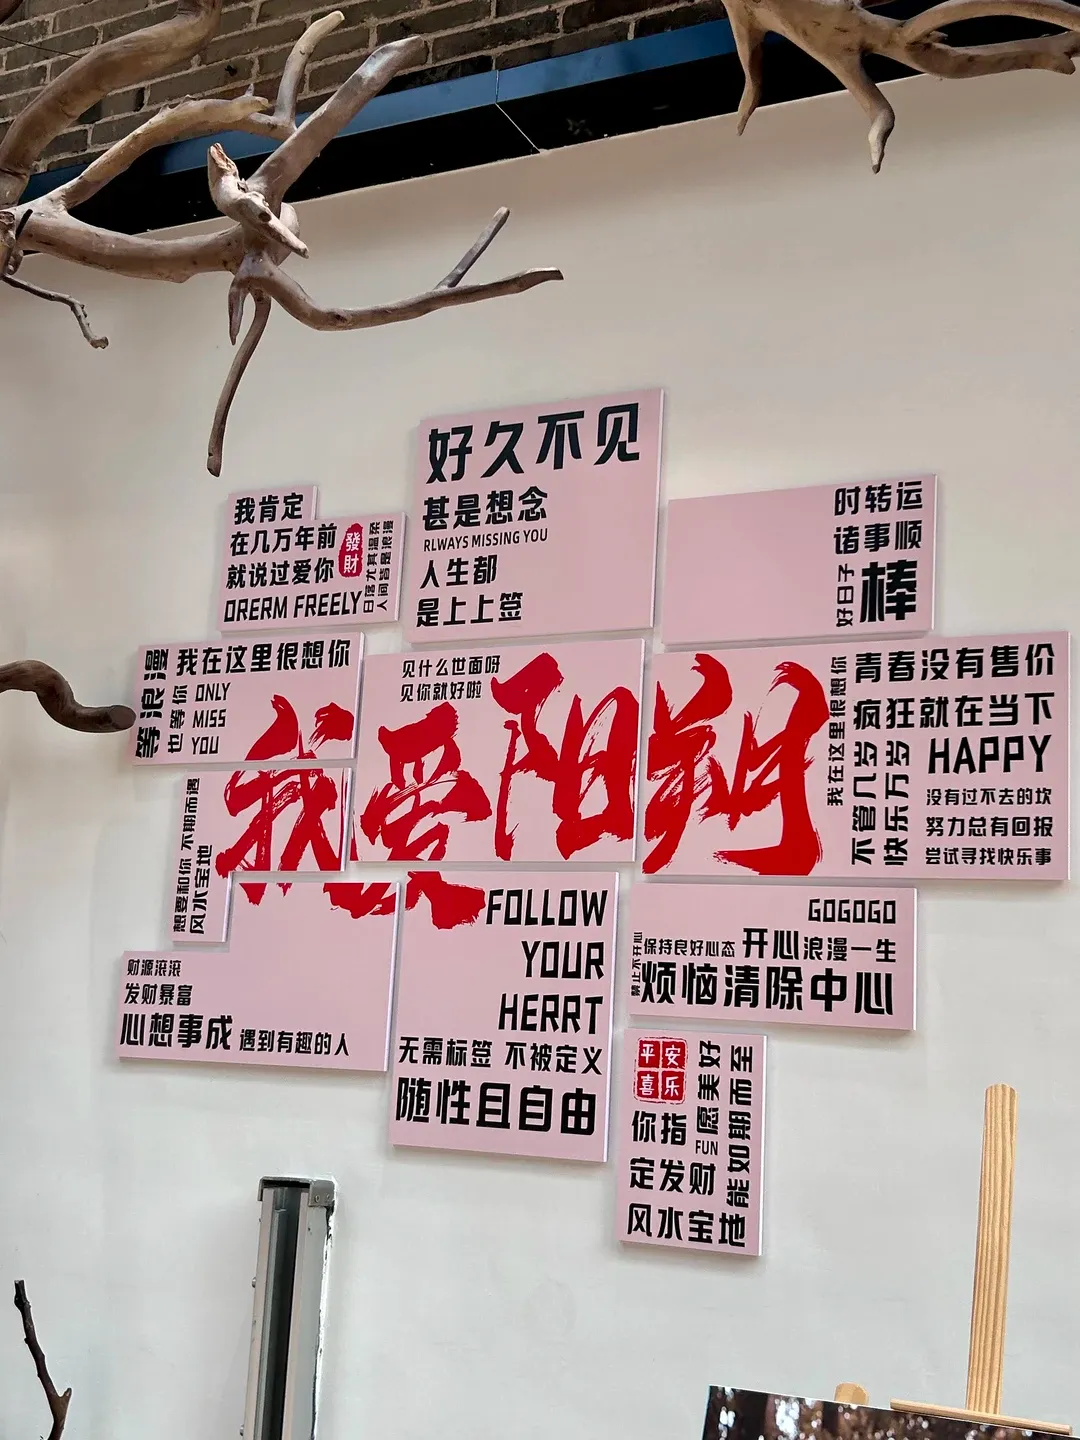 好久不见
甚是想念
RLWAYS MISSING YOU
人生都
是上上签
我肯定
在几万年前
就说过爱你
DRERM FREELY
發財
日落尤其温柔
人间皆是浪漫
时转运
诸事顺
好日子
棒
等浪漫
也等你
我在这里很想你
ONLY
MISS
YOU
见什么世面呀
见你就好啦
我爱阳朔
我在这里很想你
青春没有售价
疯狂就在当下
不管几岁
快乐万岁
HAPPY
没有过不去的坎
努力总有回报
尝试寻找快乐事
想要和你 不期而遇
风水宝地
财源滚滚
发财暴富
心想事成 遇到有趣的人
FOLLOW
YOUR
HERRT
无需标签 不被定义
随性且自由
GOGOGO
禁止不开心
保持良好心态 开心浪漫一生
烦恼清除中心
平安
喜乐
你指
定发财
风水宝地
FUN 愿美好
能如期而至